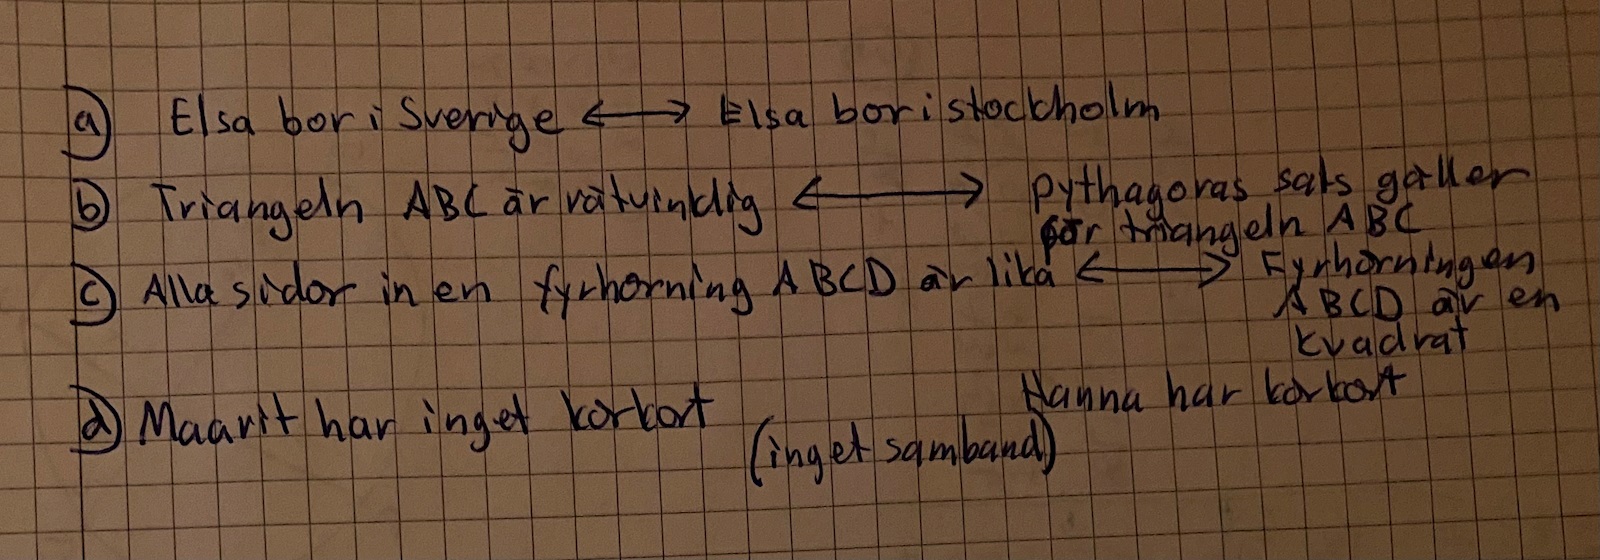 a) Elsa bor i Sverige ⟷ Elsa bor i stockholm
b) Triangeln ABC är rätvinklig ⟷ pythagoras sats gäller
för triangeln ABC
c) Alla sidor in en fyrhörning ABCD är lika ⟷ Fyrhörningen
ABCD är en
kvadrat
d) Maarit har inget körkort Hanna har körkort
(inget samband)